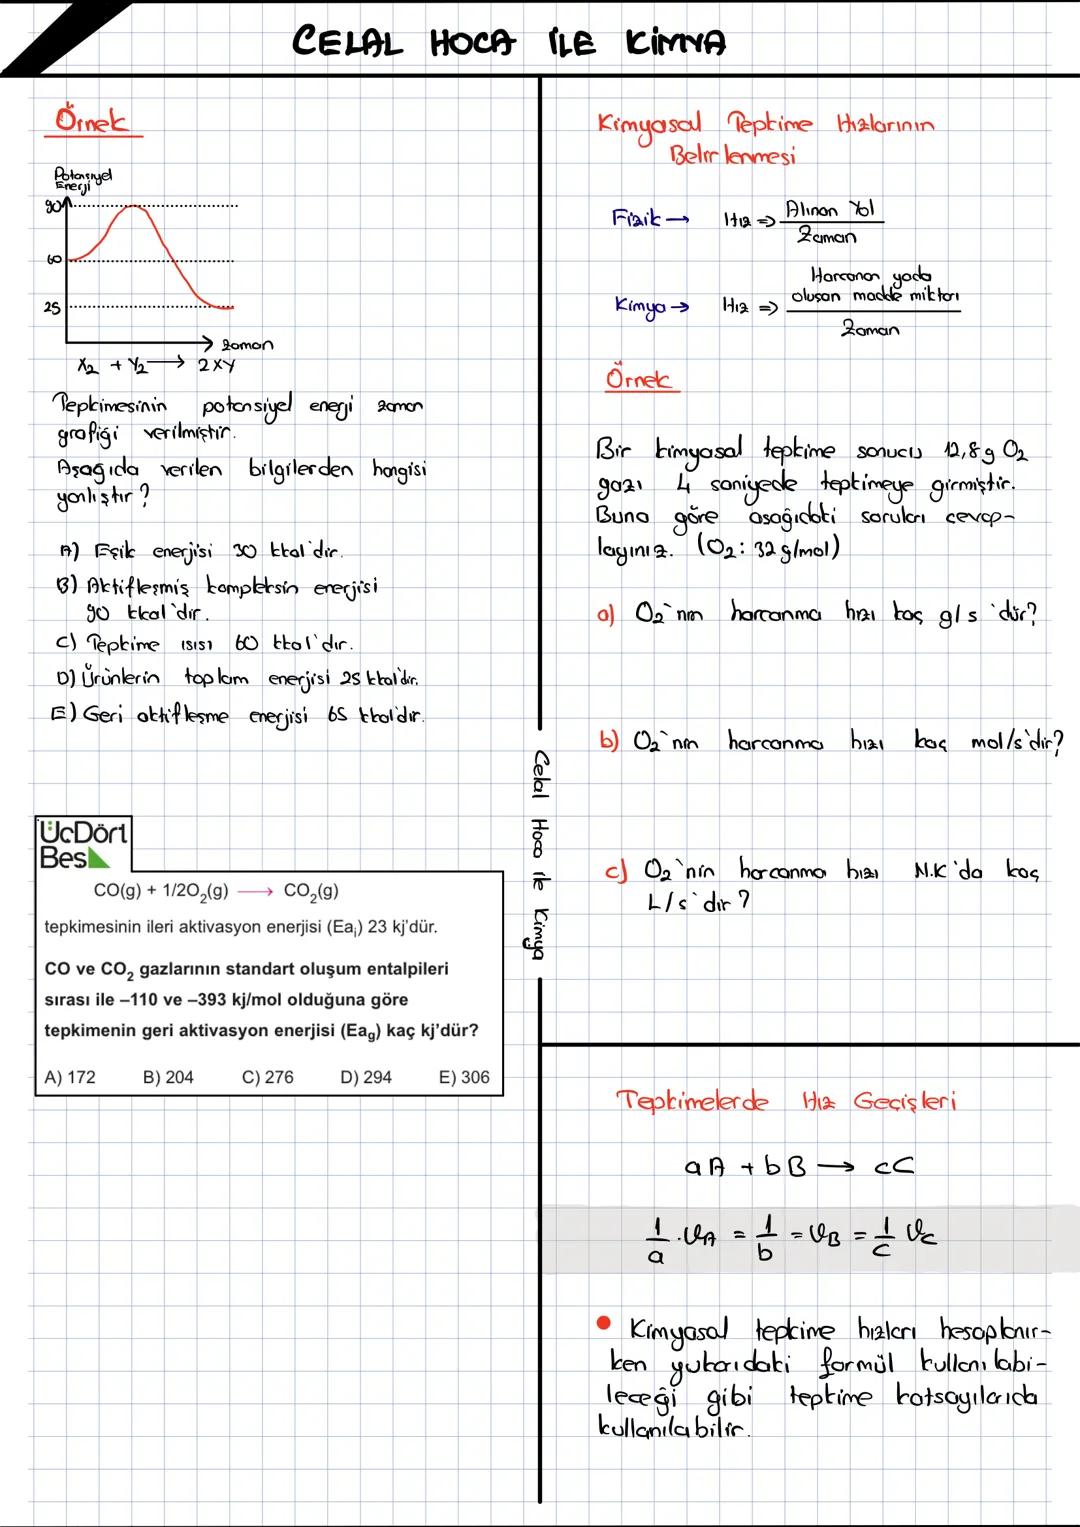 CELAL HOCA İLE KİMYA
Örnek
Potansiyel
Enerji
90
60
25
zaman
X₂ + Y₂ → 2XY
Tepkimesinin potansiyel enerji zaman
grafiği verilmiştir.
Aşağıda verilen bilgilerden hangisi
yanlıştır?
A) Eşik enerjisi 30 kkal'dir.
B) Aktifleşmiş kompleksin enerjisi
90 kkal'dır.
C) Tepkime ısısı 60 kkal'dır.
D) Ürünlerin toplam enerjisi 25 kkal'dir.
E) Geri aktifleşme enerjisi 65 kkal'dir.
ÜcDört
Bes
CO(g) + 1/2O₂(g) → CO₂(g)
tepkimesinin ileri aktivasyon enerjisi (Eaᵢ) 23 kj'dür.
CO ve CO₂ gazlarının standart oluşum entalpileri
sırası ile –110 ve –393 kj/mol olduğuna göre
tepkimenin geri aktivasyon enerjisi (Ea_g) kaç kj'dür?
A) 172 B) 204 C) 276 D) 294 E) 306
Celal Hoca ile Kimya
Kimyasal Tepkime Hızlarının
Belirlenmesi
Fizik → Hız ⇒ Alınan Yol
Zaman
Kimya → Hız ⇒ Harcanan yada
oluşan madde miktarı
Zaman
Örnek
Bir kimyasal tepkime sonucu 12,8 g O₂
gazı 4 saniyede tepkimeye girmiştir.
Buna göre aşağıdaki soruları cevap-
layınız. (O₂: 32 g/mol)
a) O₂'nin harcanma hızı kaç g/s 'dür?
b) O₂'nin harcanma hızı kaç mol/s'dir?
c) O₂'nin harcanma hızı N.K'da kaç
L/s'dir?
Tepkimelerde Hız Geçişleri
aA + bB → cC
1/a · υA = 1/b = υB = 1/c υc
• Kimyasal tepkime hızları hesaplanır-
ken yukarıdaki formül kullanılabi-
leceği gibi tepkime katsayılarıda
kullanılabilir.